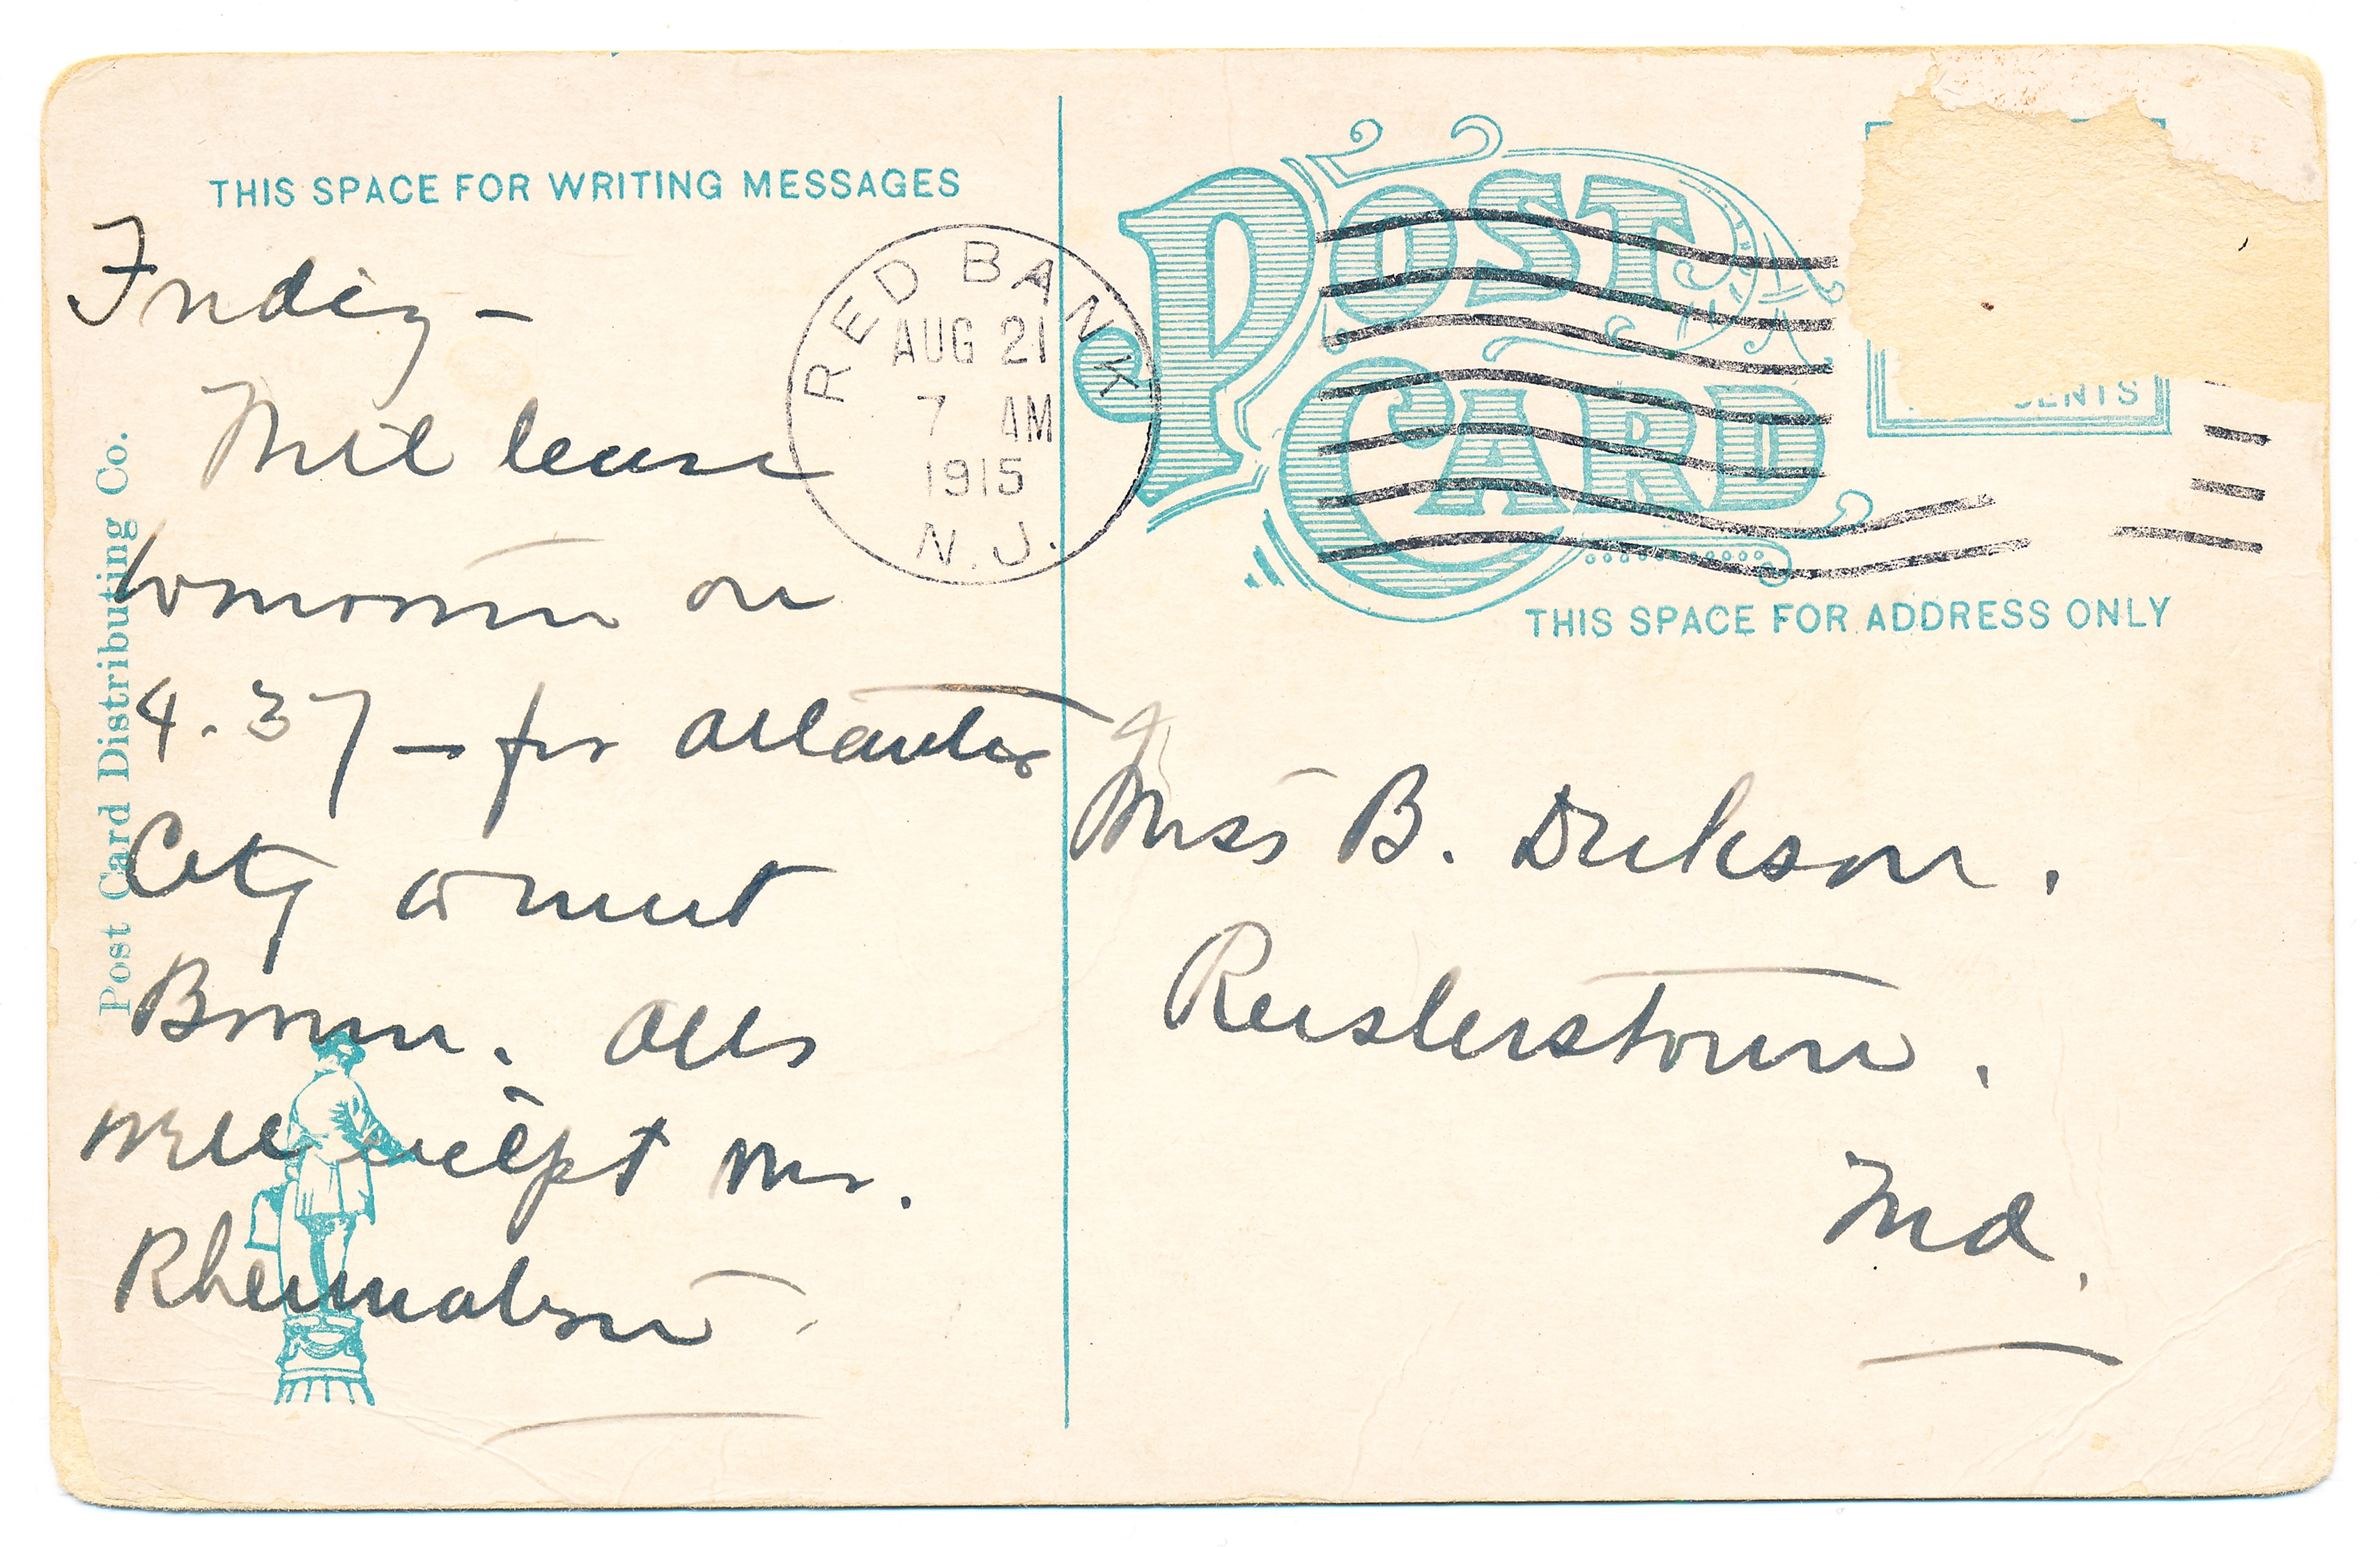 THIS SPACE FOR WRITING MESSAGES
Friday –
Will leave
tomorrow on
4.37 – for Atlantic
City & meet
All
well except Mr.
Rheumatism.
Post Card Distributing Co.
RED BANK
AUG 21
7 AM
1915
N.J.
POST CARD
CENTS
THIS SPACE FOR ADDRESS ONLY
Miss B. Dickson.
Reisterstown.
Md.